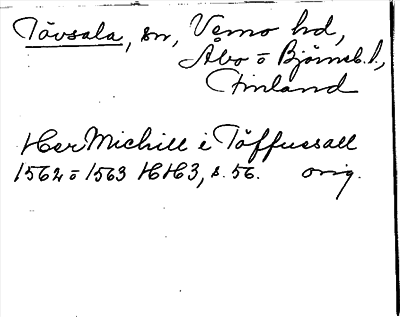 Tövsala, sn, Vemo hd,
Åbo o Björneb. l.,
Finland
Her Michill i Töffuesall
1562 o 1563 HH3, s. 56. orig.